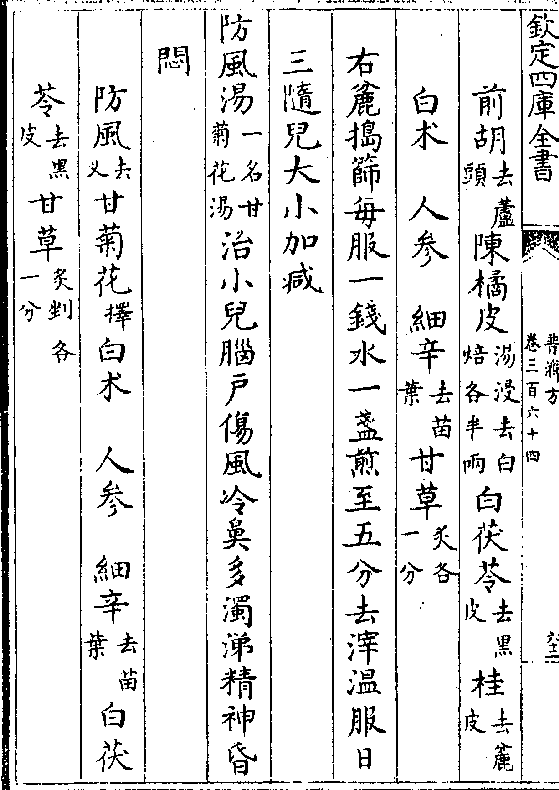 欽定四庫全書
普濟方
卷三百六十四
前胡去蘆頭陳橘皮湯浸去白焙各半兩白茯苓去黒皮桂去麄皮
白术 人參 細辛去苗葉甘草炙各一分
右麄搗篩每服一錢水一盞煎至五分去滓温服日
三隨兒大小加減
防風湯一名甘菊花湯治小兒腦戶傷風冷鼻多濁涕精神昏
悶
防風去义甘菊花擇白术 人參 細辛去苗葉白茯
苓去黒皮甘草炙剉各一分